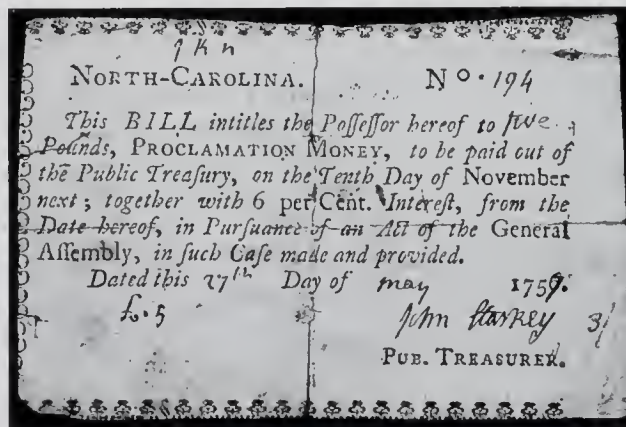 NORTH-CAROLINA. No. 194
This BILL intitles the Poſſeſſor hereof to five
Pounds, PROCLAMATION MONEY, to be paid out of
the Public Treaſury, on the Tenth Day of November
next; together with 6 per Cent. Intereſt, from the
Date hereof, in Purſuance of an Act of the General
Aſſembly, in ſuch Caſe made and provided.
Dated this 27th Day of may 1757.
£.5 John Starkey
PUB. TREASURER.